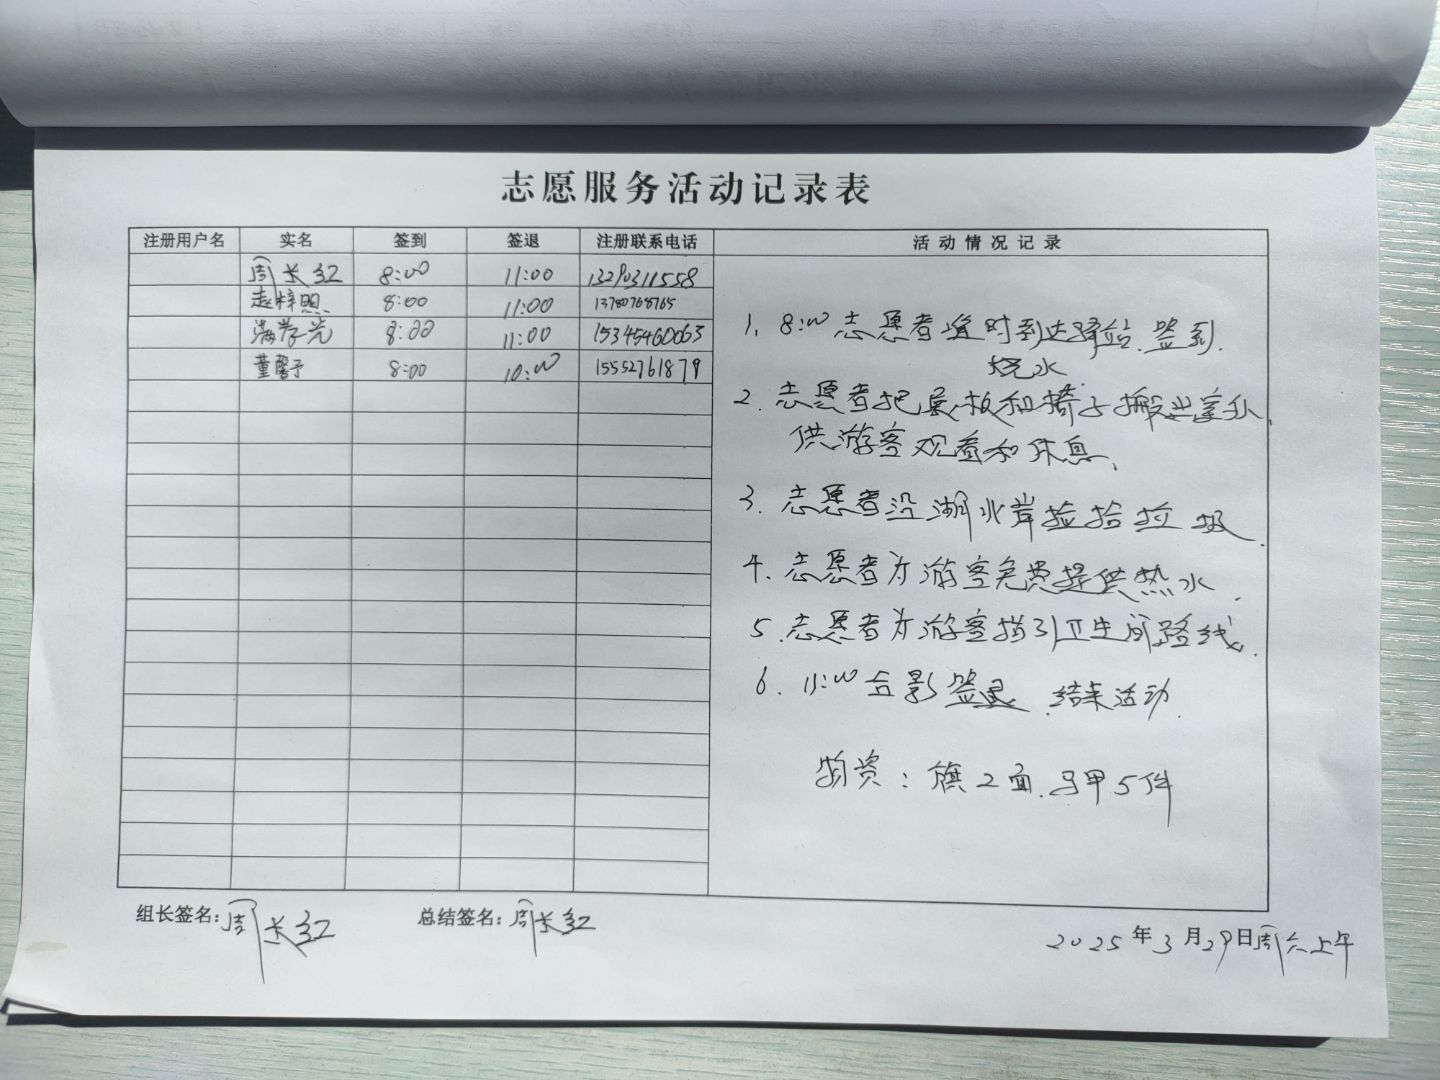 志愿服务活动记录表
注册用户名 实名 签到 签退 注册联系电话 活动情况记录
周长红 8:00 11:00 13290311558
赵梓照 8:00 11:00 13780768765
8:00 11:00 15345460063
董馨予 8:00 10:00 15552761879
1. 8:00志愿者准时到达驿站.签到.
烧水
2. 志愿者把展板和椅子搬出室外.
供游客观看和休息.
3. 志愿者沿湖北岸捡拾垃圾.
4. 志愿者为游客免费提供热水.
5. 志愿者为游客指引卫生间路线.
6. 11:00合影签退.结束活动.
物资:旗2面.马甲5件
组长签名:周长红 总结签名:周长红
2025年3月29日周六上午